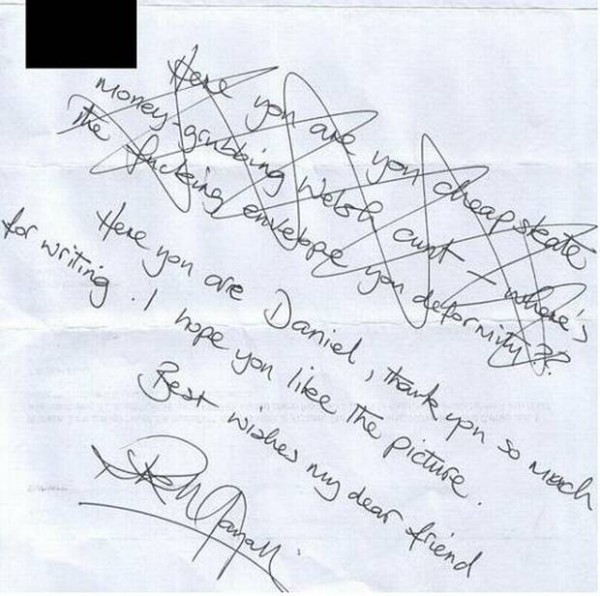 Here you are you cheapskate
money-grubbing Welsh cunt – where's
the fucking envelope you deformity??
Here you are Daniel, thank you so much
for writing. I hope you like the picture.
Best wishes my dear friend
Rik Mayall